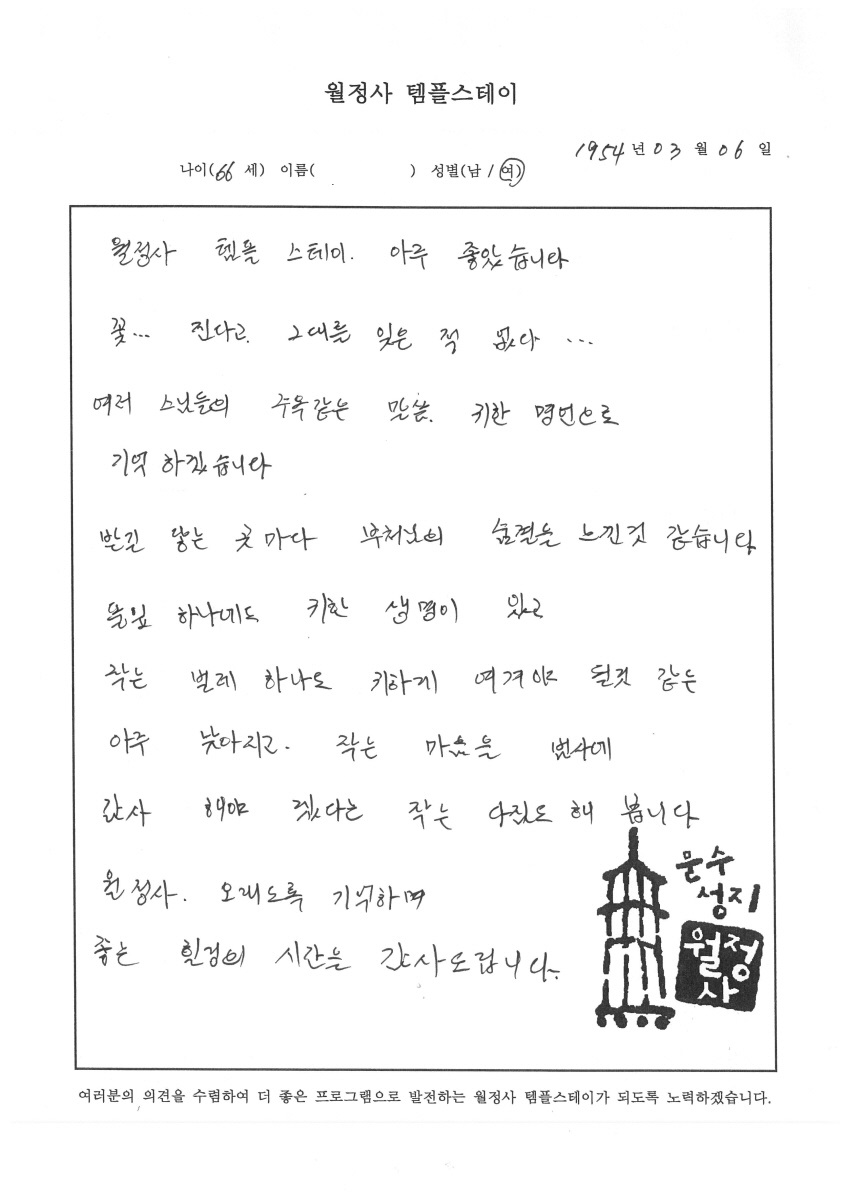 월정사 템플스테이
1954 년 03 월 06 일
나이(66 세) 이름( ) 성별(남 / 여)
월정사 템플 스테이. 아주 좋았습니다
꽃... 진다고. 그대를 잊은 적 없다 ...
여러 스님들의 주옥같은 말씀. 귀한 명언으로
기억 하겠습니다
발길 닿는 곳 마다 부처님의 숨결을 느낀것 같습니다
풀잎 하나에도 귀한 생명이 있고
작은 벌레 하나도 귀하게 여겨야 될것 같은
아주 낮아지고. 작은 마음을 범사에
감사 해야 겠다는 작은 다짐도 해 봅니다
월정사. 오래도록 기억하며
좋은 힐링의 시간을 감사드립니다.
문수
성지
월정
사
여러분의 의견을 수렴하여 더 좋은 프로그램으로 발전하는 월정사 템플스테이가 되도록 노력하겠습니다.